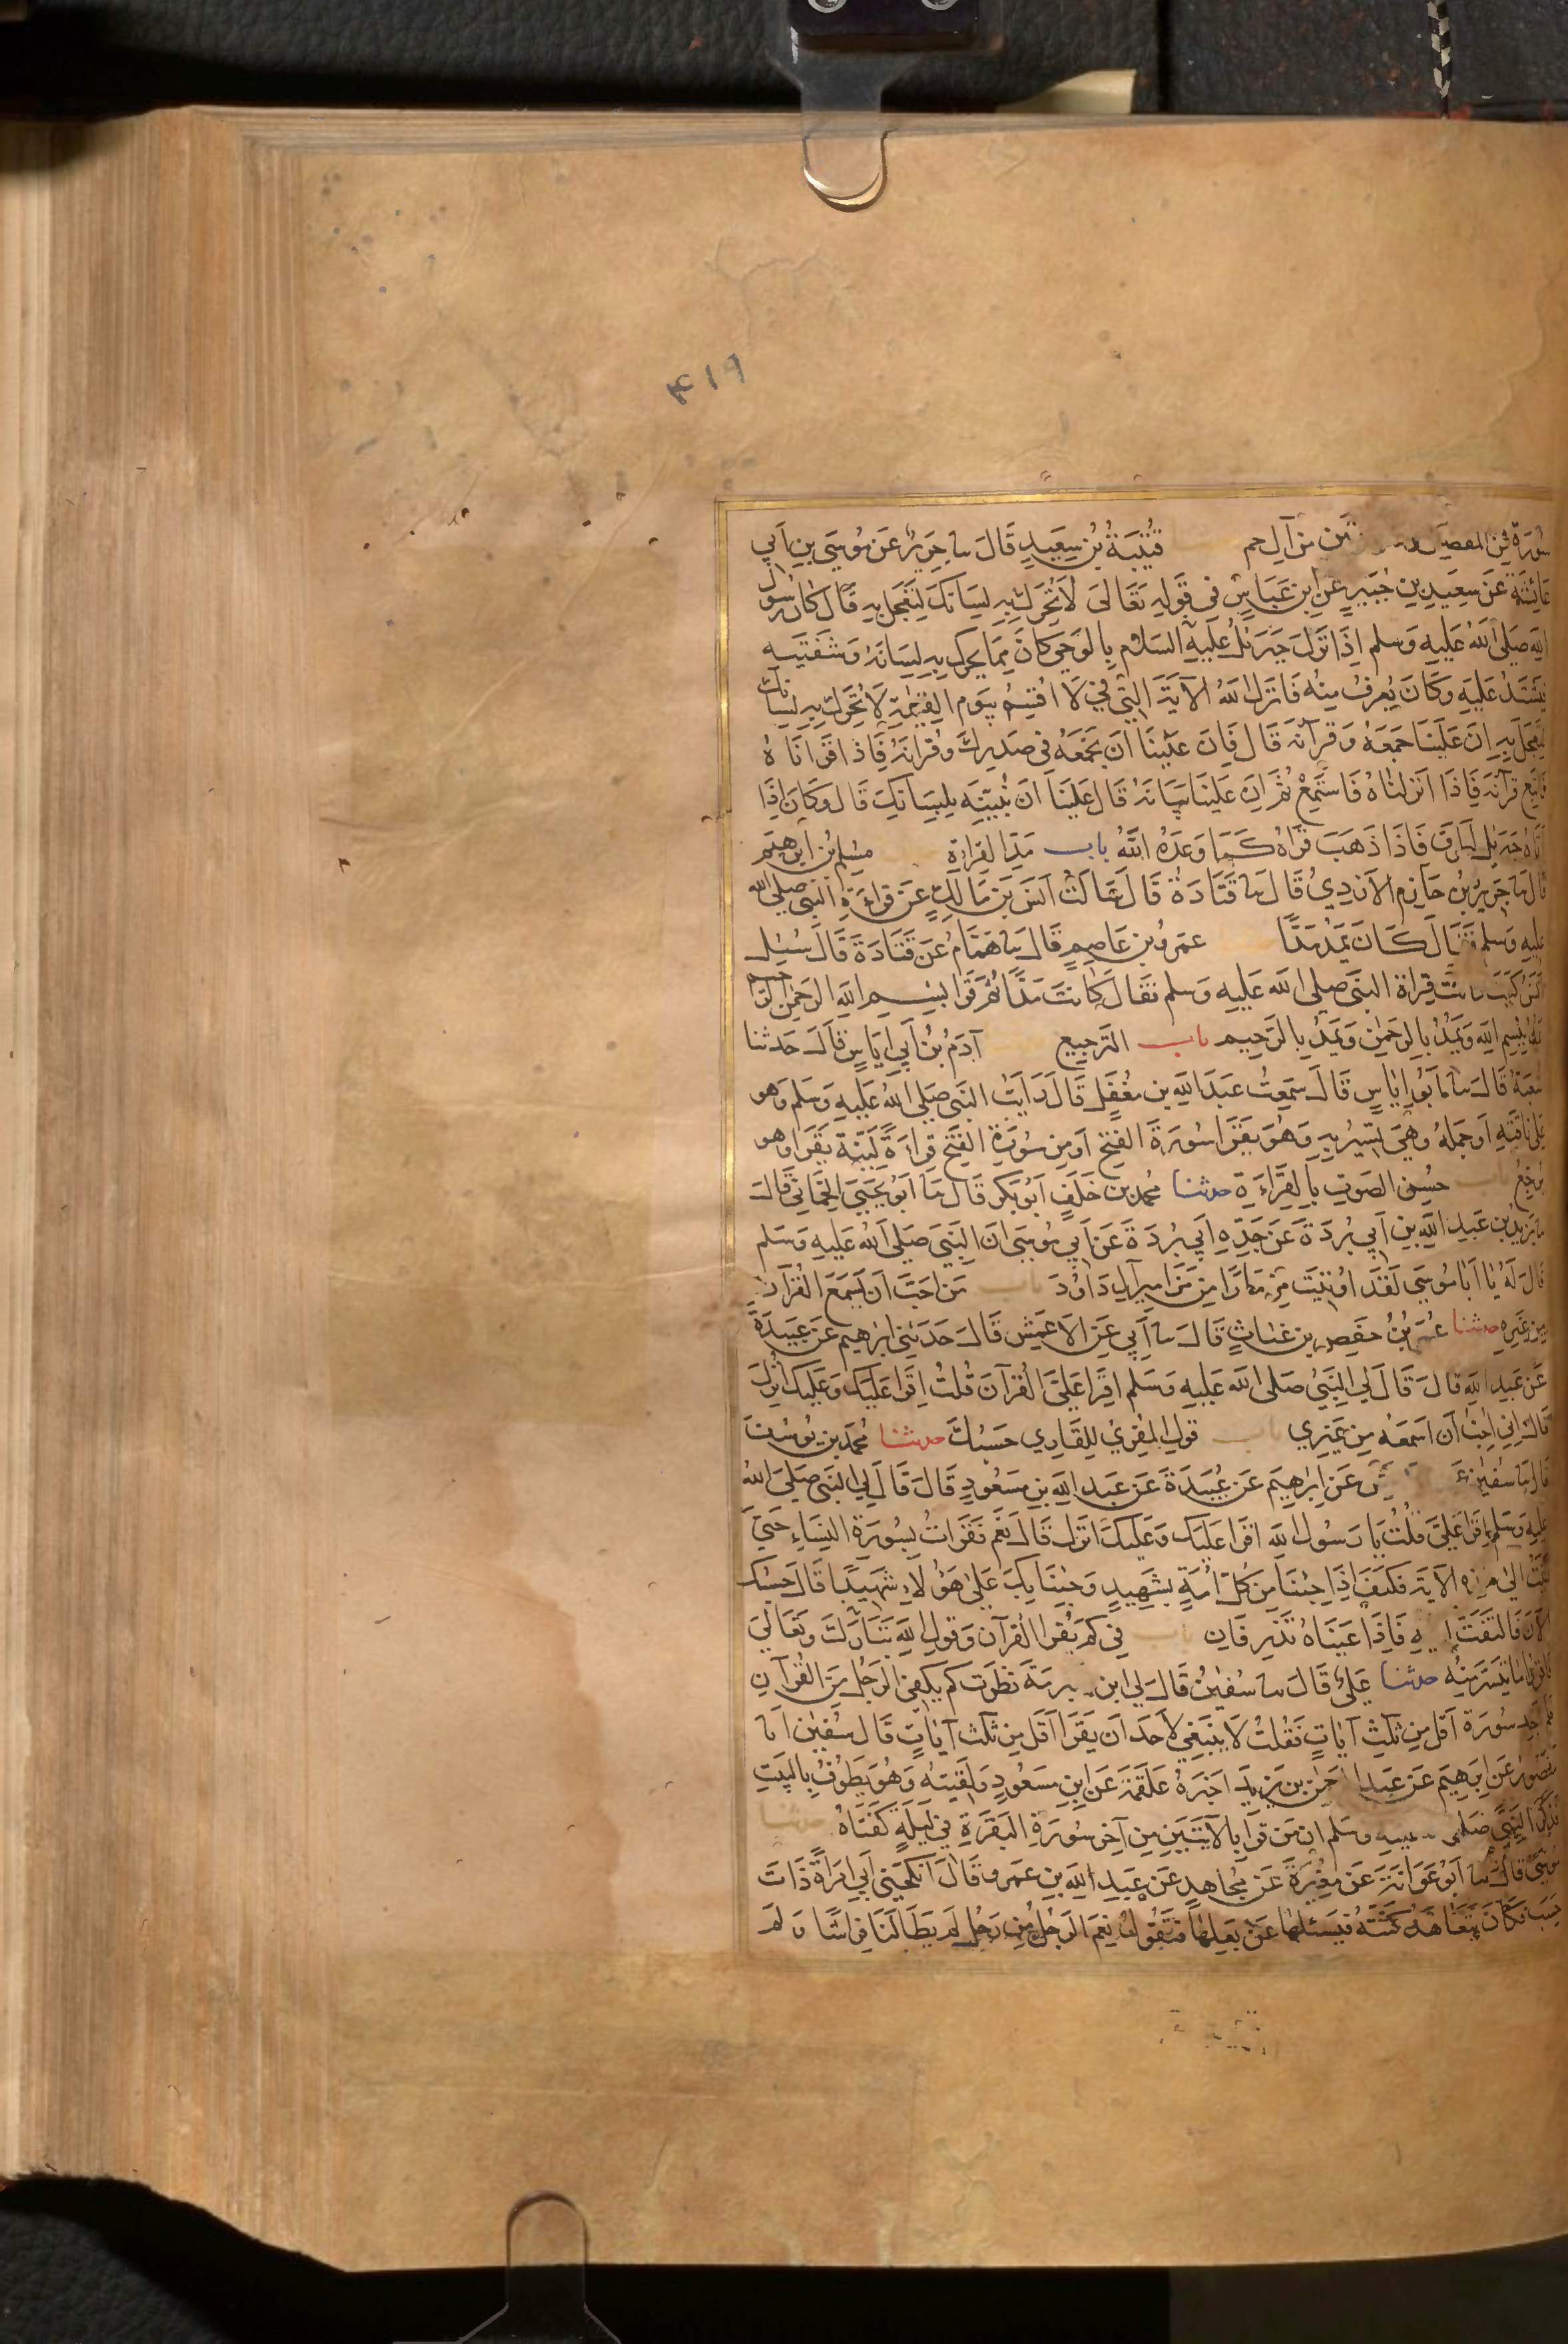 ۴۱۹
سورة من المفصل وسورتين من آل حم قتيبة بن سعيد قال سا جرير عن موسى بن ابي
عائشة عن سعيد بن جبير عن ابن عباس في قوله تعالى لا تحرك به لسانك لتعجل به قال كان رسول
الله صلى الله عليه وسلم اذا نزل جبرئل عليه السلام بالوحي كان مما يحرك به لسانه وشفتيه
فيشتد عليه وكان يعرف منه فانزل الله الآية التي في لا اقسم بيوم القيمة لا تحرك به لسانك
لتعجل به ان علينا جمعه وقرآنه قال فان علينا ان نجمعه في صدرك وقرانه فاذا قرانا ه
فاتبع قرآنه فاذا انزلناه فاستمع ثم ان علينا بيانه قال علينا ان نبينه بلسانك قال وكان اذا
اتاه جبريل اطرق فاذا ذهب قراه كما وعده الله باب مد القراءة مسلم بن ابرهيم
قال سا جرير بن حازم الازدي قال سا قتادة قال سالت انس بن مالك عن قراءة النبي صلى الله
عليه وسلم فقال كان يمد مدا عمرو بن عاصم قال سا همام عن قتادة قال سئل
انس كيف كانت قراة النبي صلى الله عليه وسلم فقال كانت مدا ثم قرا بسم الله الرحمن الرحيم
يمد ببسم الله ويمد بالرحمن ويمد بالرحيم باب الترجيع آدم بن ابي اياس قال حدثنا
شعبة قال سا ابو اياس قال سمعت عبد الله بن مغفل قال رايت النبي صلى الله عليه وسلم وهو
على ناقته او جمله وهي تسير به وهو يقرا سورة الفتح او من سورة الفتح قراءة لينة يقرا وهو
يرجع باب حسن الصوت بالقراءة حدثنا محمد بن خلف ابو بكر قال سا ابو يحيى الحماني قال
سا بريد بن عبد الله بن ابي بردة عن جده ابي بردة عن ابي موسى ان النبي صلى الله عليه وسلم
قال له يا ابا موسى لقد اوتيت مزمارا من مزامير آل داود باب من احب ان يسمع القرآن
من غيره حدثنا عمر بن حفص بن غياث قال سا ابي عن الاعمش قال حدثني ابرهيم عن عبيدة
عن عبد الله قال قال لي النبي صلى الله عليه وسلم اقرا علي القرآن قلت اقرا عليك وعليك انزل
قال اني احب ان اسمعه من غيري باب قول المقرئ للقاري حسبك حدثنا محمد بن يوسف
قال سا سفين عن ابراهيم عن عبيدة عن عبد الله بن مسعود قال قال لي النبي صلى الله
عليه وسلم اقرا علي قلت يا رسول الله اقرا عليك وعليك انزل قال نعم فقرات سورة النساء حتى
اتيت الى هذه الآية فكيف اذا جئنا من كل امة بشهيد وجئنا بك على هؤلاء شهيدا قال حسبك
الآن فالتفت اليه فاذا عيناه تذرفان باب في كم يقرا القرآن وقول الله تبارك وتعالى
فاقرؤا ما تيسر منه حدثنا علي قال سا سفين قال لي ابن شبرمة نظرت كم يكفي الرجل من القرآن
فلم اجد سورة اقل من ثلث آيات فقلت لا ينبغي لاحد ان يقرا اقل من ثلث آيات قال سفين انا
منصور عن ابرهيم عن عبد الرحمن بن يزيد اخبره علقمة عن ابن مسعود ولقيته وهو يطوف بالبيت
فذكر النبي صلى الله عليه وسلم ان من قرا بالآيتين من آخر سورة البقرة في ليلة كفتاه حدثنا
موسى قال سا ابو عوانة عن مغيرة عن مجاهد عن عبد الله بن عمرو قال انكحني ابي امراة ذات
حسب فكان يتعاهد كنته فيسئلها عن بعلها فتقول نعم الرجل من رجل لم يطا لنا فراشا ولم